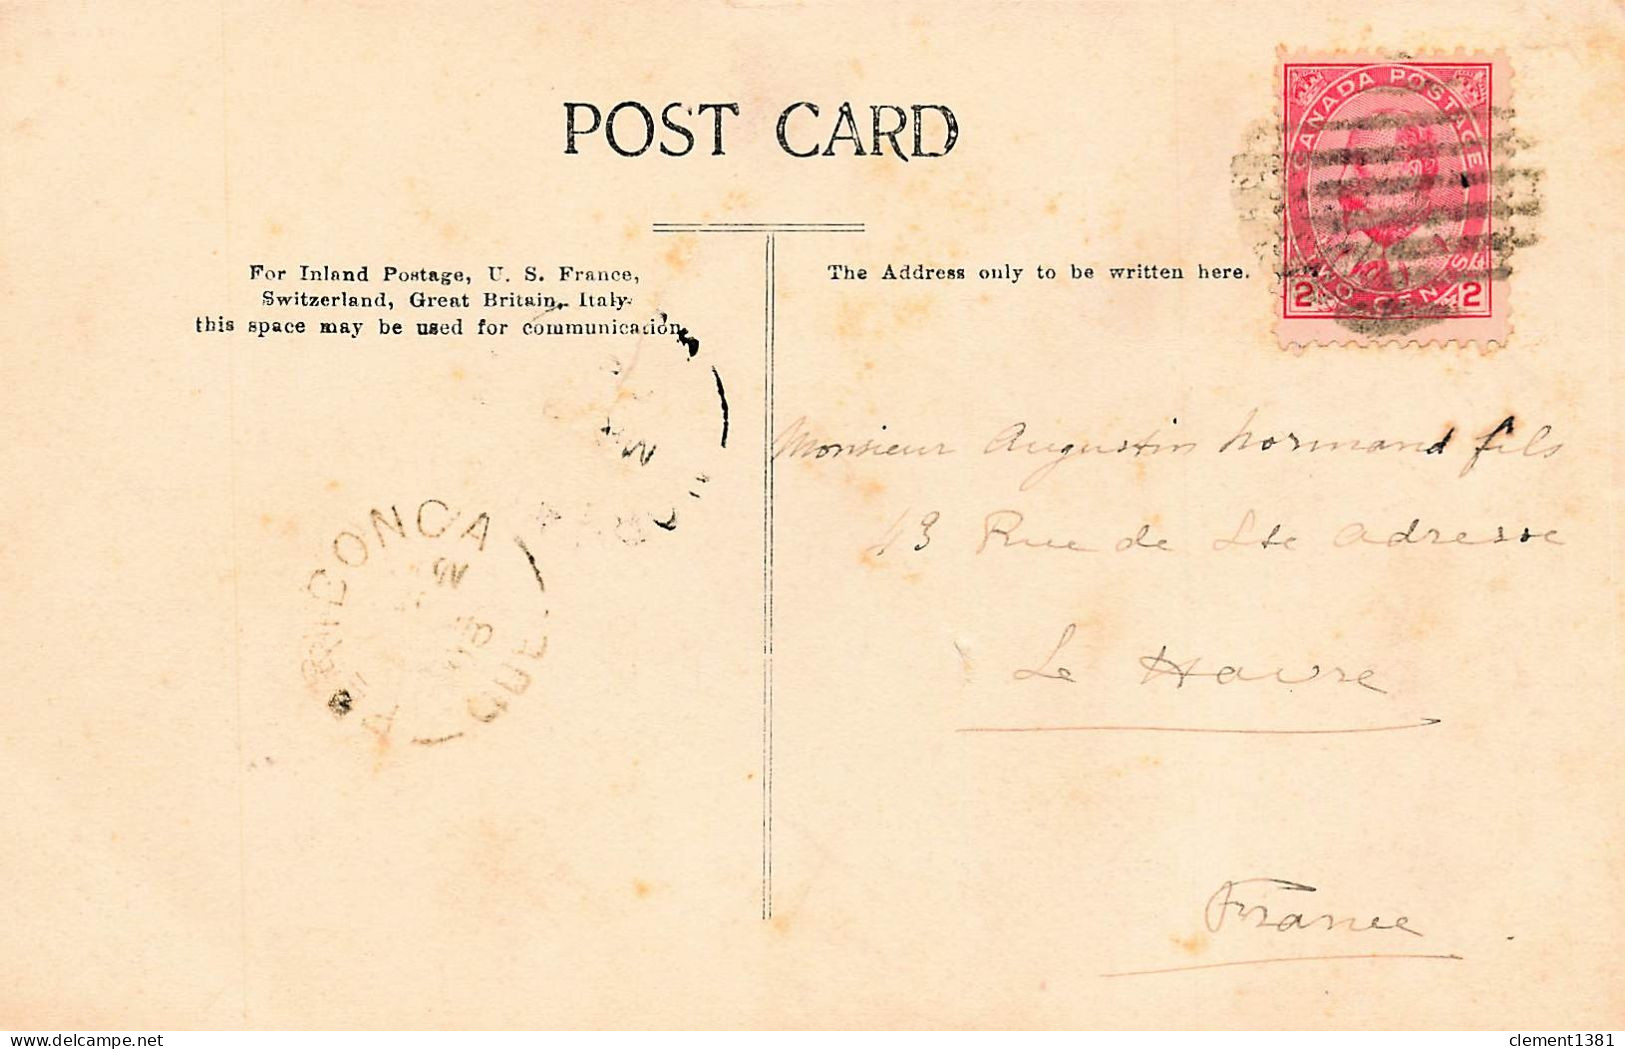 POST CARD
For Inland Postage, U. S. France,
Switzerland, Great Britain, Italy
this space may be used for communication
The Address only to be written here.
CANADA POSTAGE
TWO CENTS
2 2
Monsieur Augustin Normand fils
43 Rue de Ste Adresse
Le Havre
France
QUE
delcampe.net
clement1381